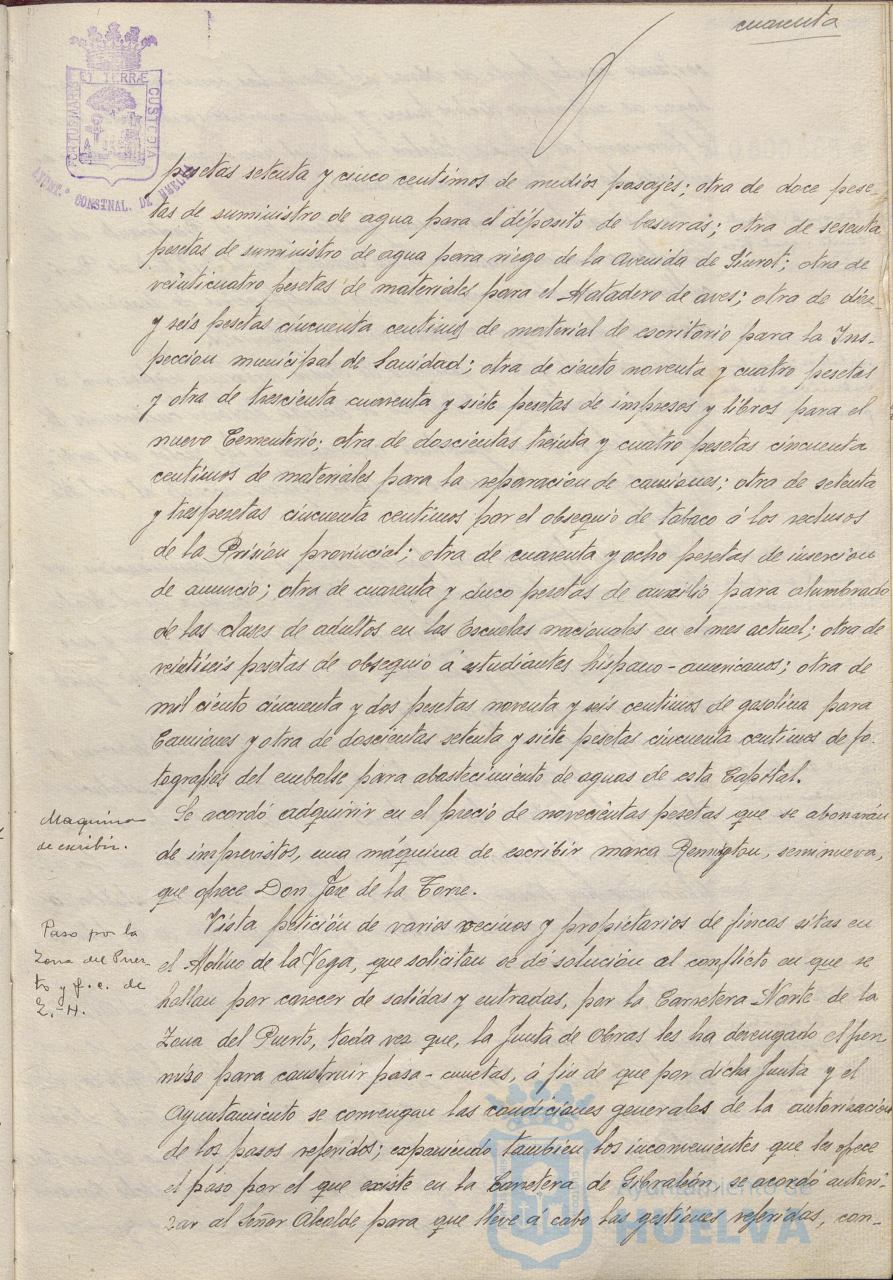 cuarenta
PORTUS MARIS ET TERRÆ CUSTODIA
AYUNT.º CONSTNAL. DE HUELVA
pesetas setenta y cinco centimos de medios pasajes; otra de doce pese-
tas de suministro de agua para el déposito de basuras; otra de sesenta
pesetas de suministro de agua para riego de la Avenida de Siurot; otra de
veinticuatro pesetas de materiales para el Matadero de aves; otra de diez
y seis pesetas cincuenta centimos de material de escritorio para la Ins-
peccion municipal de Sanidad; otra de ciento noventa y cuatro pesetas
y otra de trescienta cuarenta y siete pesetas de impresos y libros para el
nuevo Cementerio; otra de doscientas treinta y cuatro pesetas cincuenta
centimos de materiales para la reparacion de camiones; otra de setenta
y tres pesetas cincuenta centimos por el obsequio de tabaco á los reclusos
de la Prisión provincial; otra de cuarenta y ocho pesetas de insercion
de anuncio; otra de cuarenta y cinco pesetas de auxilio para alumbrado
de las clases de adultos en las Escuelas nacionales en el mes actual; otra de
veintiseis pesetas de obsequio á estudiantes hispano-americanos; otra de
mil ciento cincuenta y dos pesetas noventa y seis centimos de gasolina para
Camiones y otra de doscientas setenta y siete pesetas cincuenta centimos de fo-
tografias del embalse para abastecimiento de aguas de esta Capital.
Maquina
de escribir.
Se acordó adquirir en el precio de novecientas pesetas que se abonarán
de imprevistos, una máquina de escribir marca Remigton, seminueva,
que ofrece Don Jose de la Torre.
Paso por la
Zona del Puer-
to y f.c. de
Z.-H.
Vista petición de varios vecinos y propietarios de fincas sitas en
el Molino de la Vega, que solicitan se dé solución al conflicto en que se
hallan por carecer de salidas y entradas, por la Carretera Norte de la
Zona del Puerto, toda vez que, la Junta de Obras les ha devengado el per-
miso para construir pasa-cunetas, á fin de que por dicha Junta y el
Ayuntamiento se convengan las condiciones generales de la autorizacion
de los pasos referidos; exponiendo tambien los inconvenientes que les ofrece
el paso por el que existe en la Carretera de Gibraleón, se acordó autori-
zar al Señor Alcalde para que lleve á cabo las gestiones referidas, con-
Ayuntamiento de
HUELVA